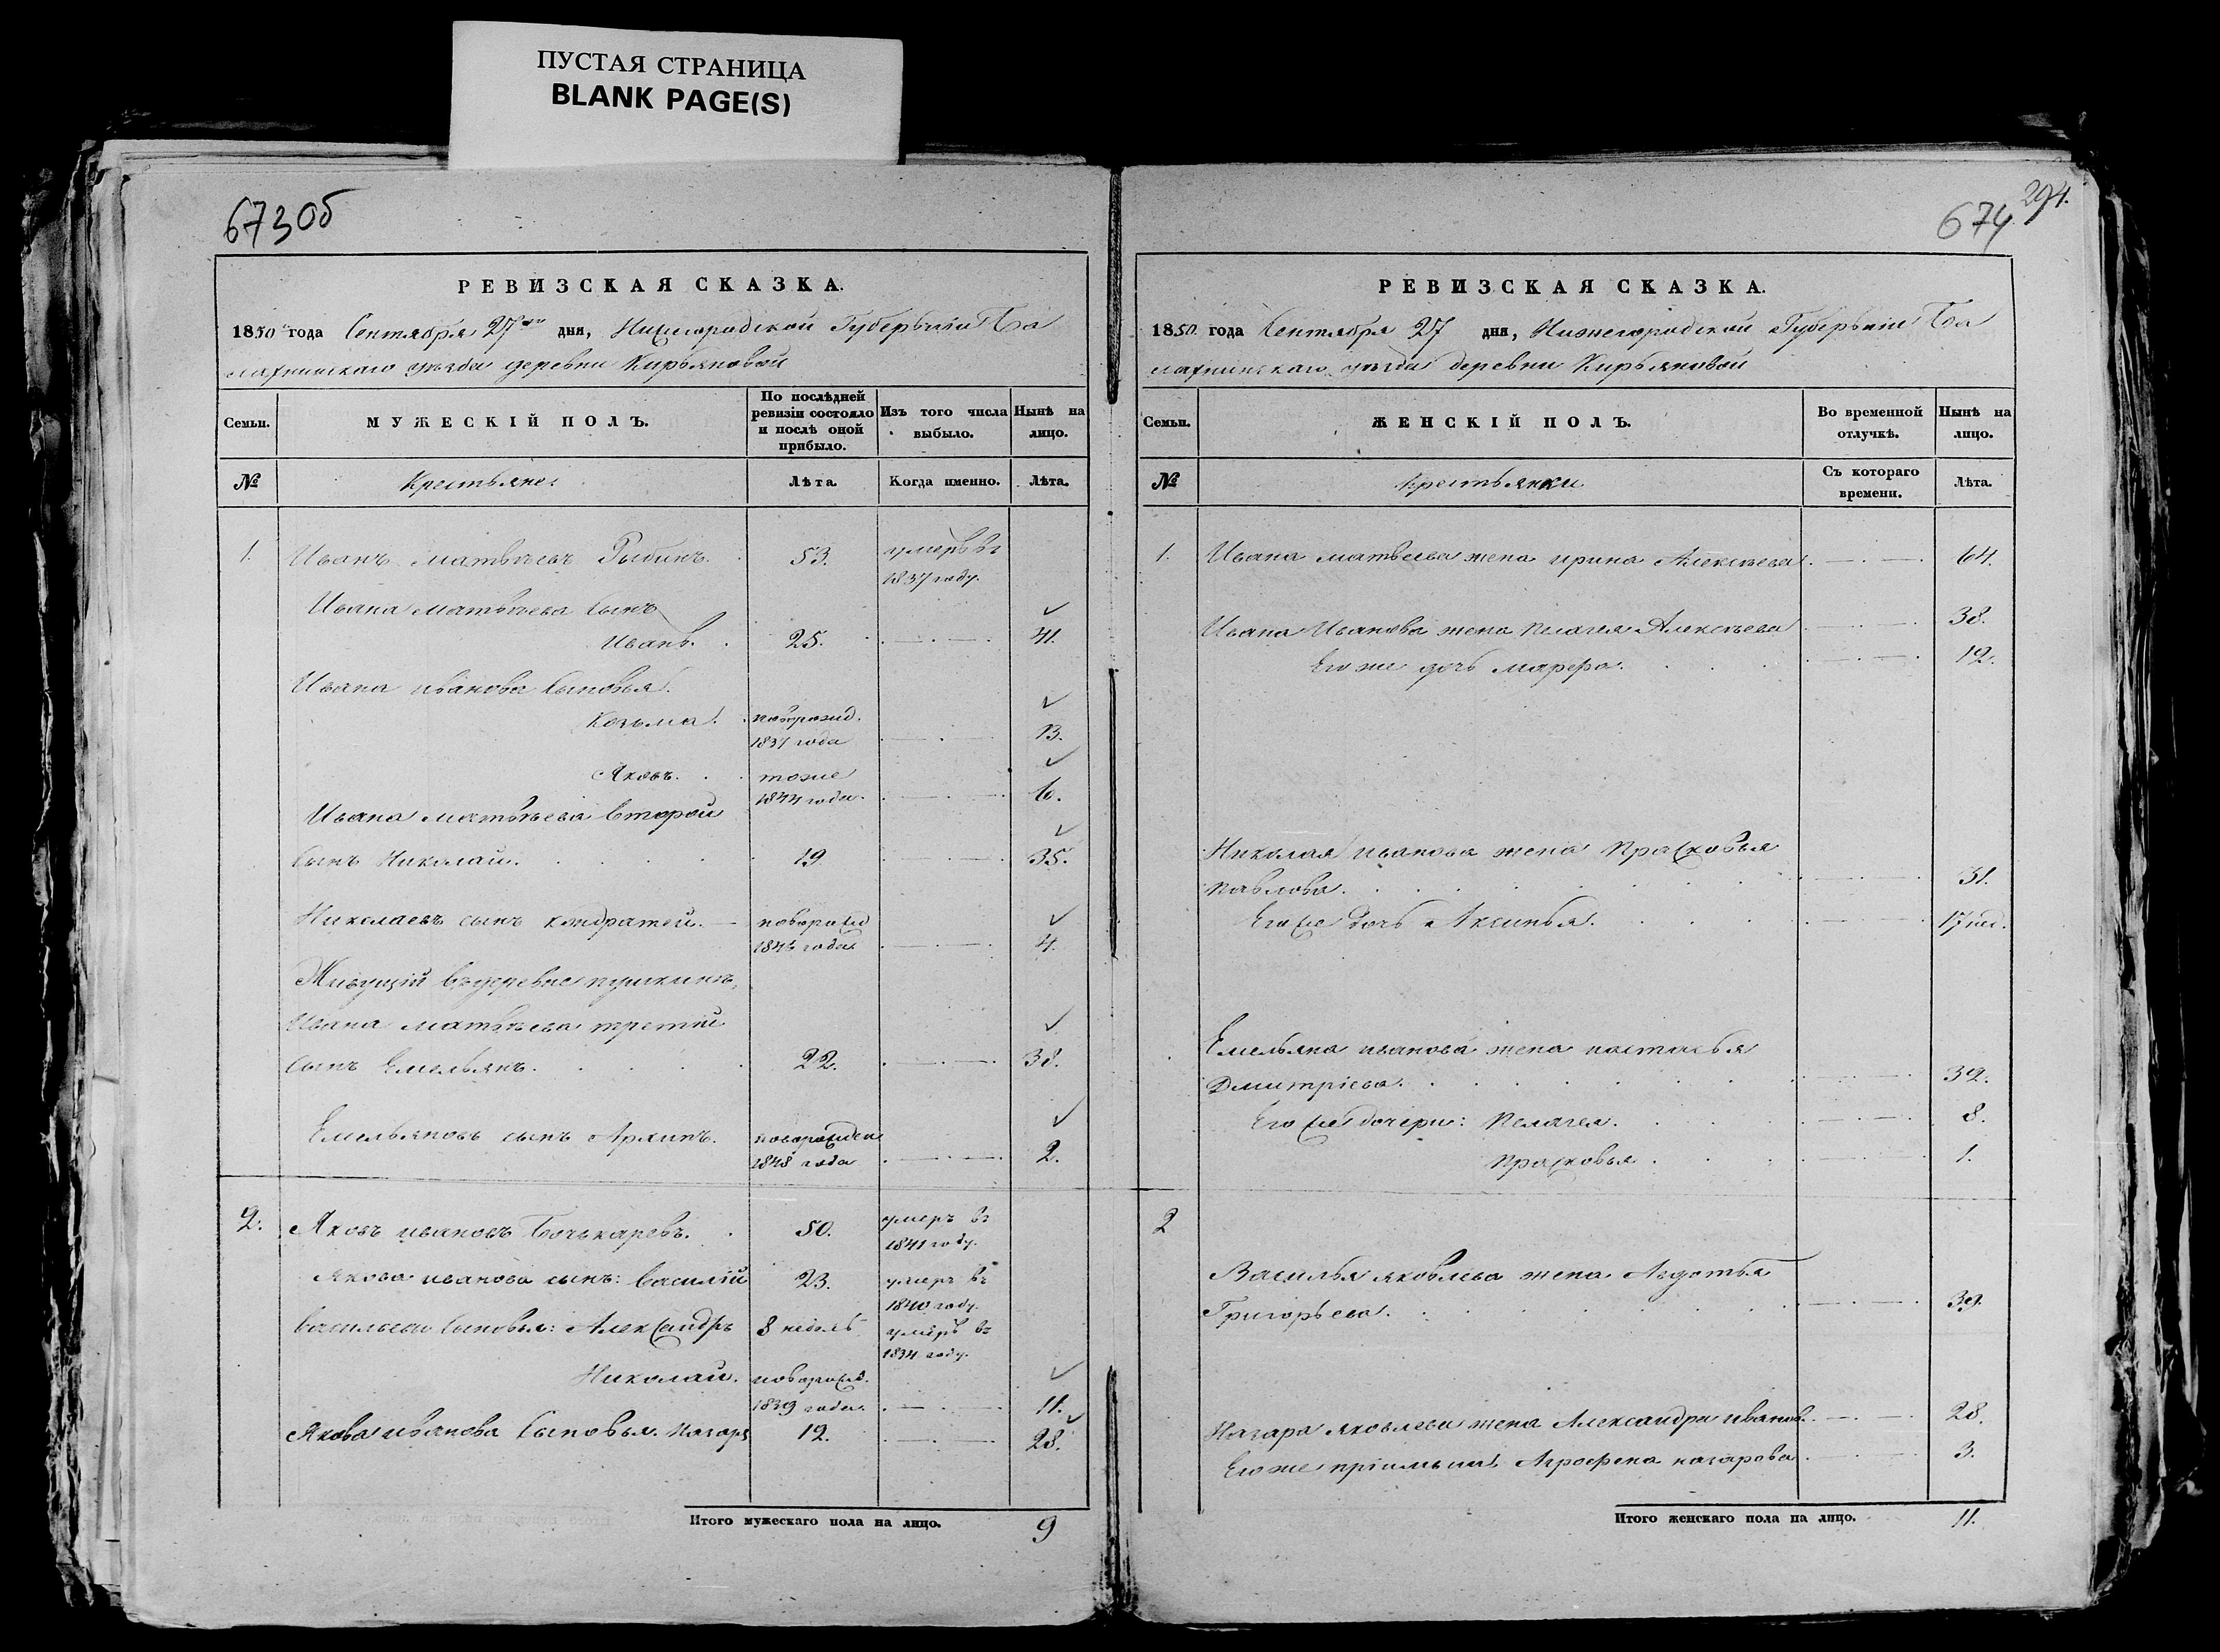 ПУСТАЯ СТРАНИЦА
BLANK PAGE(S)
673об
РЕВИЗСКАЯ СКАЗКА.
1850 года Сентября 27 дня, Нижегородской Губерніи Ба
лахнинскаго уѣзда деревни Кирьяновой
Семьи. МУЖЕСКІЙ ПОЛЪ. По послѣдней ревизіи состояло и послѣ оной прибыло. Изъ того числа выбыло. Нынѣ на лицо.
№ Крестьяне Лѣта. Когда именно. Лѣта.
1. Иванъ Матвѣевъ Рыбинъ. 53. умеръ въ
1837 году.
Ивана Матвѣева сынъ
Иванъ. 25. 41.
Ивана Иванова Сыновья.
Козьма. новорожд.
1837 года 13.
Яковъ. тоже
1844 года. 6.
Ивана Матвѣева второй
сынъ Николай. 19 35.
Николаевъ сынъ Кондратей. новорожд
1846 года 4.
Живущій въ деревне
Ивана Матвѣева третій
сынъ Емельянъ. 22. 38.
Емельяновъ сынъ Архипъ. новорожден
1848 года 2.
2. Яковъ Ивановъ Бочькаревъ. 50. умеръ въ
1841 году.
Якова Иванова сынъ: Василій 23. умеръ въ
1840 году.
Васильевы Сыновья: Александръ 8 недель умеръ въ
1834 году.
Николай. новорожд.
1839 года. 11.
Якова Иванова Сыновья. Назаръ 12. 28.
Итого мужескаго пола на лицо. 9
294.
674
РЕВИЗСКАЯ СКАЗКА.
1850. года Сентября 27 дня, Нижегородской Губерніи Ба
лахнинскаго уѣзда деревни Кирьяновой
Семьи. ЖЕНСКІЙ ПОЛЪ. Во временной отлучкѣ. Нынѣ на лицо.
№ Крестьянки Съ котораго времени. Лѣта.
1. Ивана Матвѣева жена Ирина Алексѣева. 64.
Ивана Иванова жена Пелагея Алексѣева 38.
Его же дочь Марфа. 12.
Николая Иванова жена Прасковья
Павлова. 31.
Его же дочь Аксинья. 17 нед.
Емельяна Иванова жена Настасья
Дмитріева. 32.
Его же дочери: Пелагея. 8.
Прасковья. 1.
2
Василья Яковлева жена Авдотья
Григорьева. 39.
Назара Яковлева жена Александра Иванов. 28.
Его же Аграфена Назарова. 3.
Итого женскаго пола на лицо. 11.